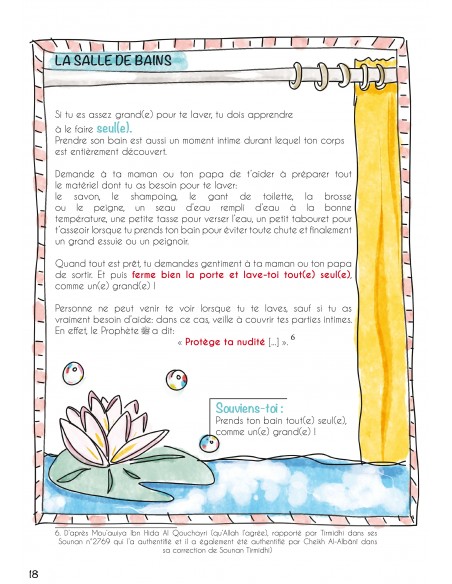 LA SALLE DE BAINS
Si tu es assez grand(e) pour te laver, tu dois apprendre
à le faire seul(e).
Prendre son bain est aussi un moment intime durant lequel ton corps
est entièrement découvert.
Demande à ta maman ou ton papa de t'aider à préparer tout
le matériel dont tu as besoin pour te laver:
le savon, le shampoing, le gant de toilette, la brosse
ou le peigne, un seau d'eau rempli d'eau à la bonne
température, une petite tasse pour verser l'eau, un petit tabouret pour
t'asseoir lorsque tu prends ton bain pour éviter toute chute et finalement
un grand essuie ou un peignoir.
Quand tout est prêt, tu demandes gentiment à ta maman ou ton papa
de sortir. Et puis ferme bien la porte et lave-toi tout(e) seul(e),
comme un(e) grand(e) !
Personne ne peut venir te voir lorsque tu te laves, sauf si tu as
vraiment besoin d'aide: dans ce cas, veille à couvrir tes parties intimes.
En effet, le Prophète ﷺ a dit:
« Protège ta nudité [...] ». 6
Souviens-toi :
Prends ton bain tout(e) seul(e),
comme un(e) grand(e) !
6. D'après Mou'awiya Ibn Hida Al Qouchayri (qu'Allah l'agrée), rapporté par Tirmidhi dans ses
Sounan n°2769 qui l'a authentifié et il a également été authentifié par Cheikh Al-Albânî dans
sa correction de Sounan Tirmidhi)
18